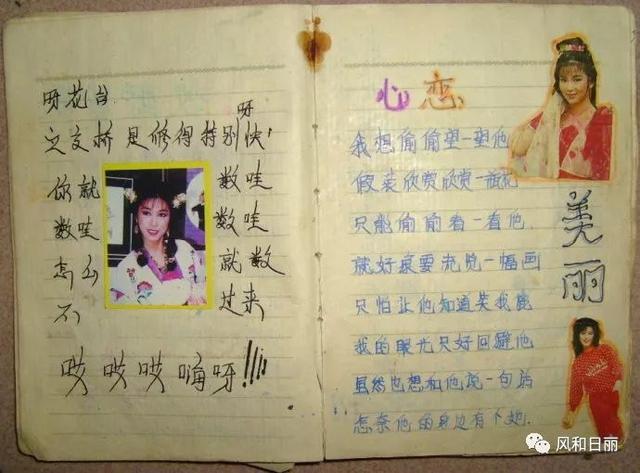 呀花台
呀
立交桥 是修得特别快!
你就 数哇
数哇 数哇
怎么 就数
不 过来
哎 哎 哎 嗨呀!!!!
心恋
我想偷偷望一望他
假装欣赏欣赏一瓶花
只能偷偷看一看他
就好象要浏览一幅画
只怕让他知道笑我
我的眼光只好回避他
虽然也想和他说一句话
怎奈他的身边有个她.
美丽
风和日丽